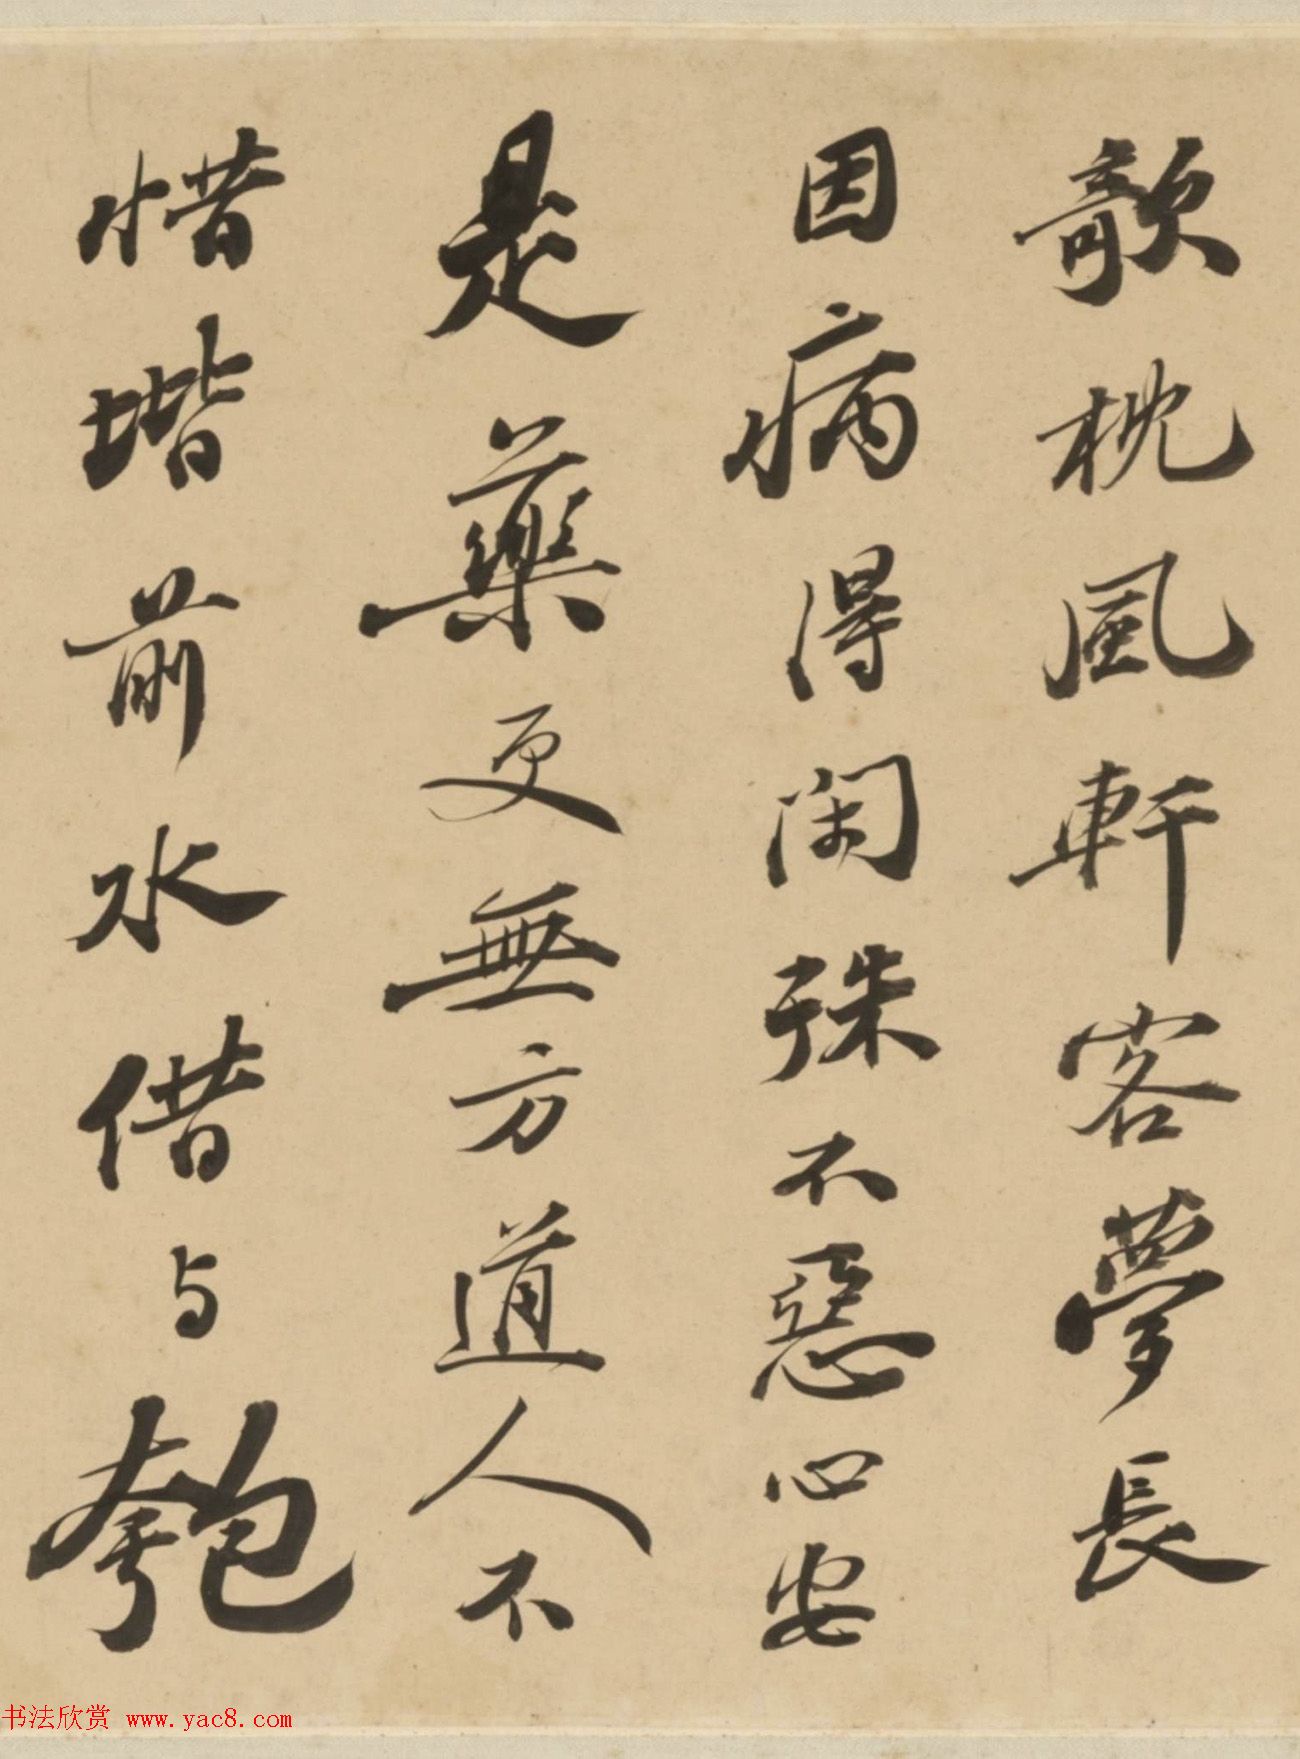 欹枕風軒客夢長
因病得閑殊不惡心安
是藥更無方道人不
惜堦前水借与匏
书法欣赏 www.yac8.com